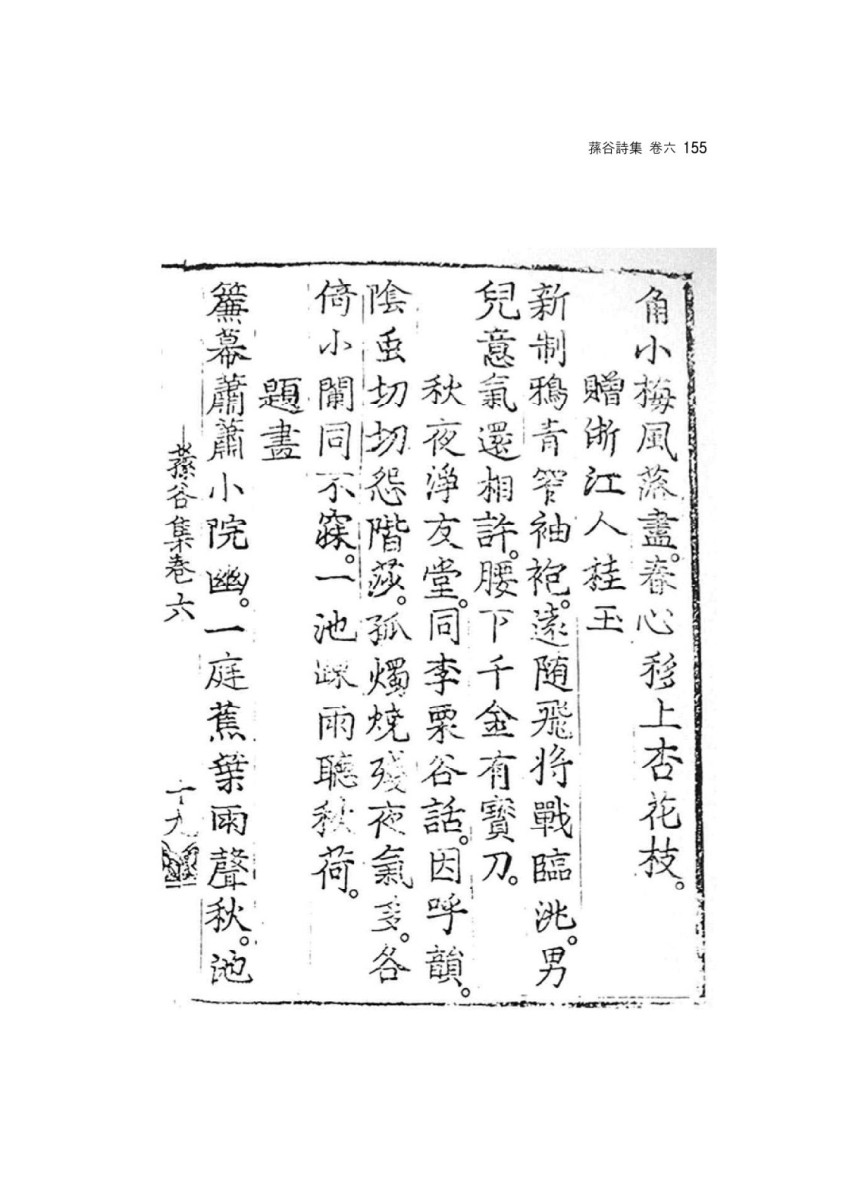 蓀谷詩集 卷六 155
角小梅風落盡。春心移上杏花枝。
贈浙江人桂玉
新制鴉青窄袖袍。遠随飛将戰臨洮。男
兒意氣還相許。腰下千金有寶刀。
秋夜淨友堂。同李栗谷話。因呼韻。
陰虫切切怨階莎。孤燭燒殘夜氣多。各
倚小闌同不寐。一池踈雨聽秋荷。
題畫
簾幕蕭蕭小院幽。一庭蕉葉雨聲秋。池
蓀谷集卷六
十九